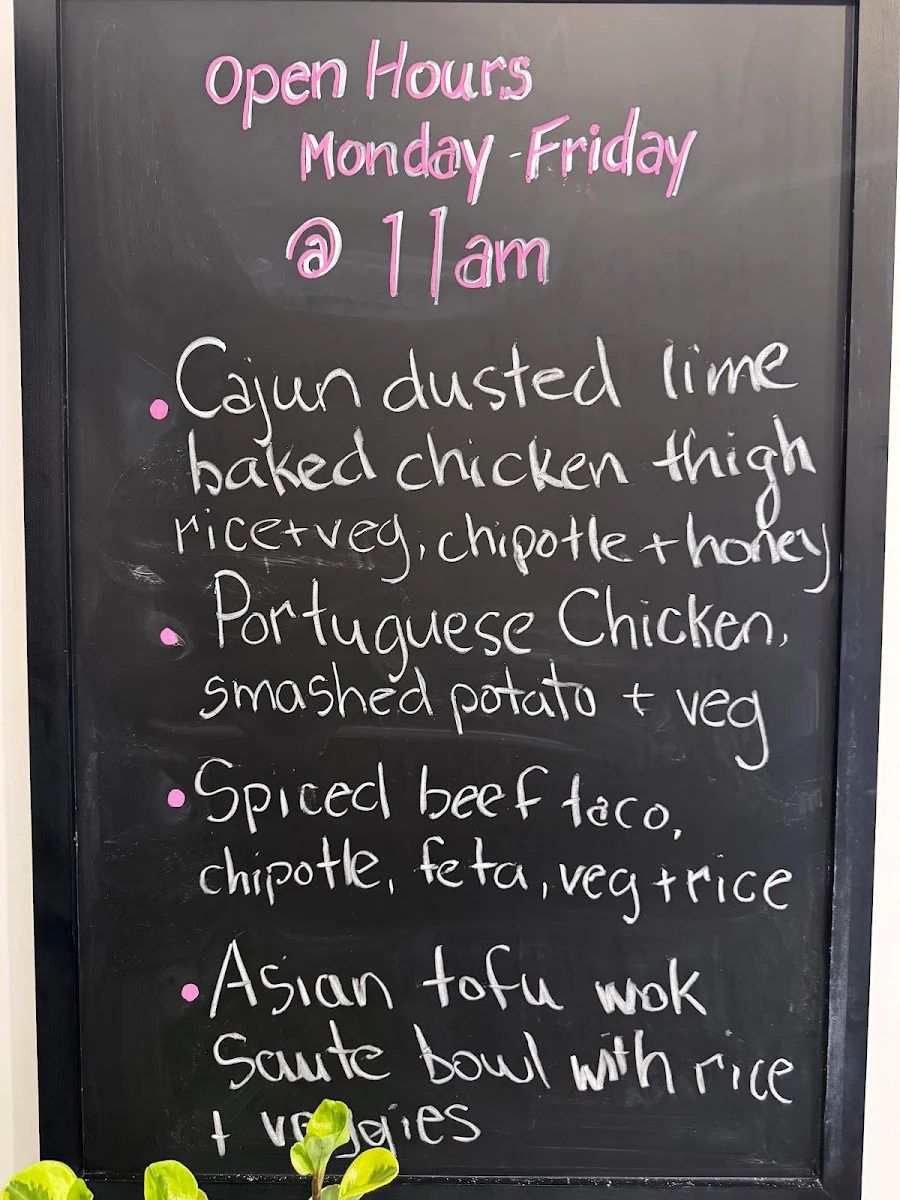 Open Hours
Monday - Friday
@ 11am
• Cajun dusted lime
baked chicken thigh
rice + veg, chipotle + honey
• Portuguese Chicken,
smashed potato + veg
• Spiced beef taco,
chipotle, feta, veg + rice
• Asian tofu wok
Saute bowl with rice
+ veggies